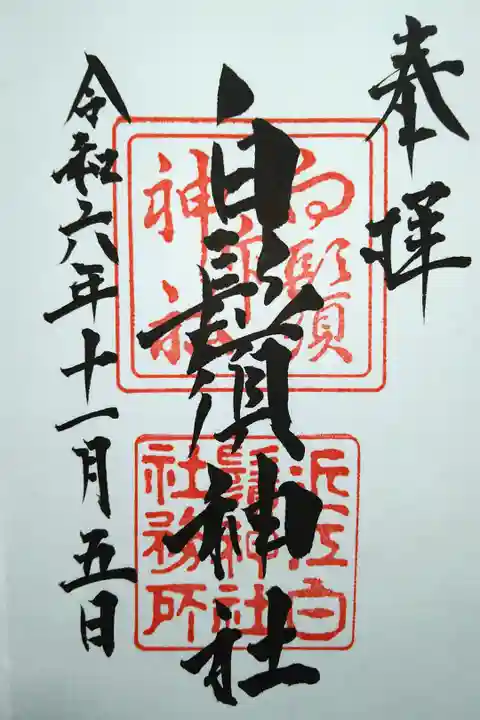 奉拝
白鬚神社
令和六年十一月五日
近江白
鬚神社
社務所